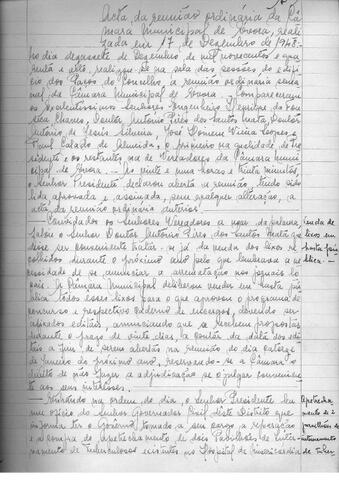 Acta da reunião ordinária da Câ-
mara Municipal de Évora, reali-
zada em 17 de Dezembro de 1948.
No dia dezassete de Dezembro de mil novecentos e qua-
renta e oito, realizou-se na sala das sessões do edifí-
cio dos Paços do Concelho, a reunião ordinária sema-
nal da Câmara Municipal de Évora. Compareceram
os Excelentíssimos Senhores Engenheiro Henrique da Fon-
seca Chaves, Doutor António Pires dos Santos Mata, Doutor
António de Jesus Silveira, José Homem Vieira Lopes e
Raul Calado de Almeida, o primeiro na qualidade de Pre-
sidente e os restantes, na de Vereadores da Câmara Muni-
cipal de Évora. — Às vinte e uma horas e trinta minutos,
o Senhor Presidente declarou aberta a reunião, tendo sido
lida, aprovada e assinada, sem qualquer alteração, a
acta da reunião ordinária anterior.
Convidados os Senhores Vereadores a usar da palavra,
falou o Senhor Doutor António Pires dos Santos Mata que
disse ser conveniente tratar-se já da venda dos lixos re-
colhidos durante o próximo ano pelo que lembrava a ne-
cessidade de se anunciar a arrematação nos jornais lo-
cais. A Câmara Municipal deliberou vender em hasta pú-
blica todos esses lixos para o que aprovou o programa de
concurso e respectivo caderno de encargos, devendo ser
afixados editais, anunciando que se recebem propostas
durante o prazo de vinte dias, a contar da data dos edi-
tais a fim de serem abertas na reunião do dia catorze
de Janeiro do próximo ano, reservando-se a Câmara o
direito de não fazer a adjudicação se o julgar conveniente
aos seus interesses.
Entrando na ordem do dia, o Senhor Presidente leu
um ofício do Senhor Governador Civil deste Distrito que
informa ter o Governo tomado a seu cargo a reparação
e a compra do apetrechamento de dois Pabilhões de inter-
namento de tuberculosos existentes no Hospital da Misericórdia
Venda de
lixos em
hasta pú-
blica.—
Apetrecha-
mento de 2
pavilhões de
internamento
de tuber-